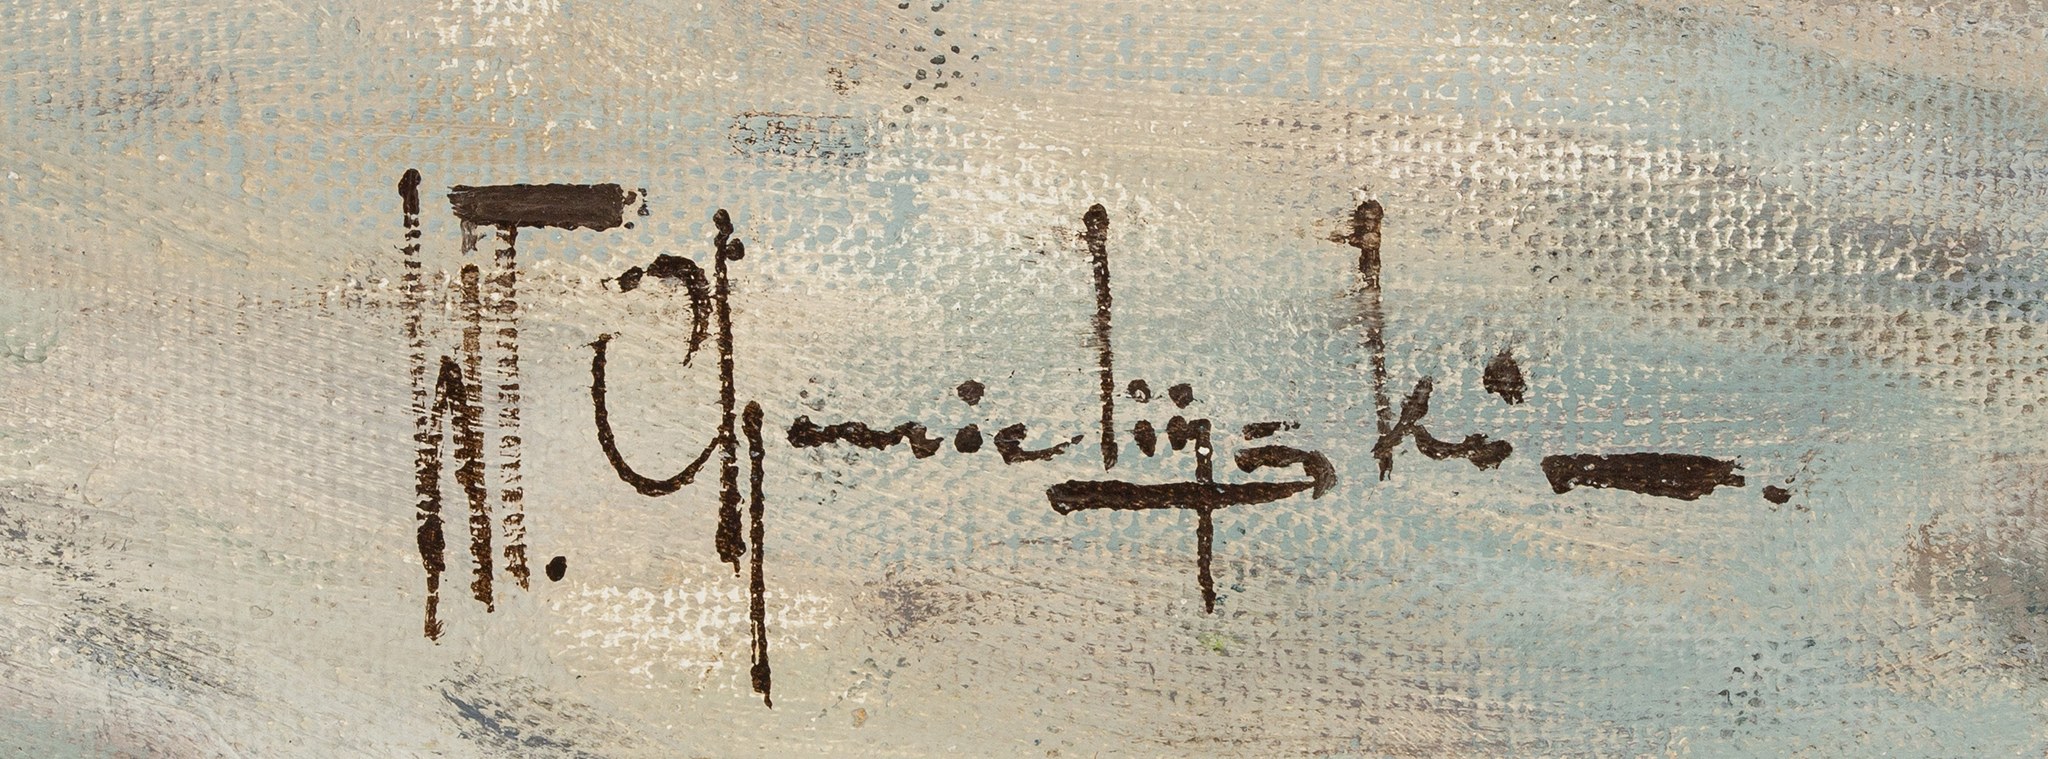 WT. Chmieliński